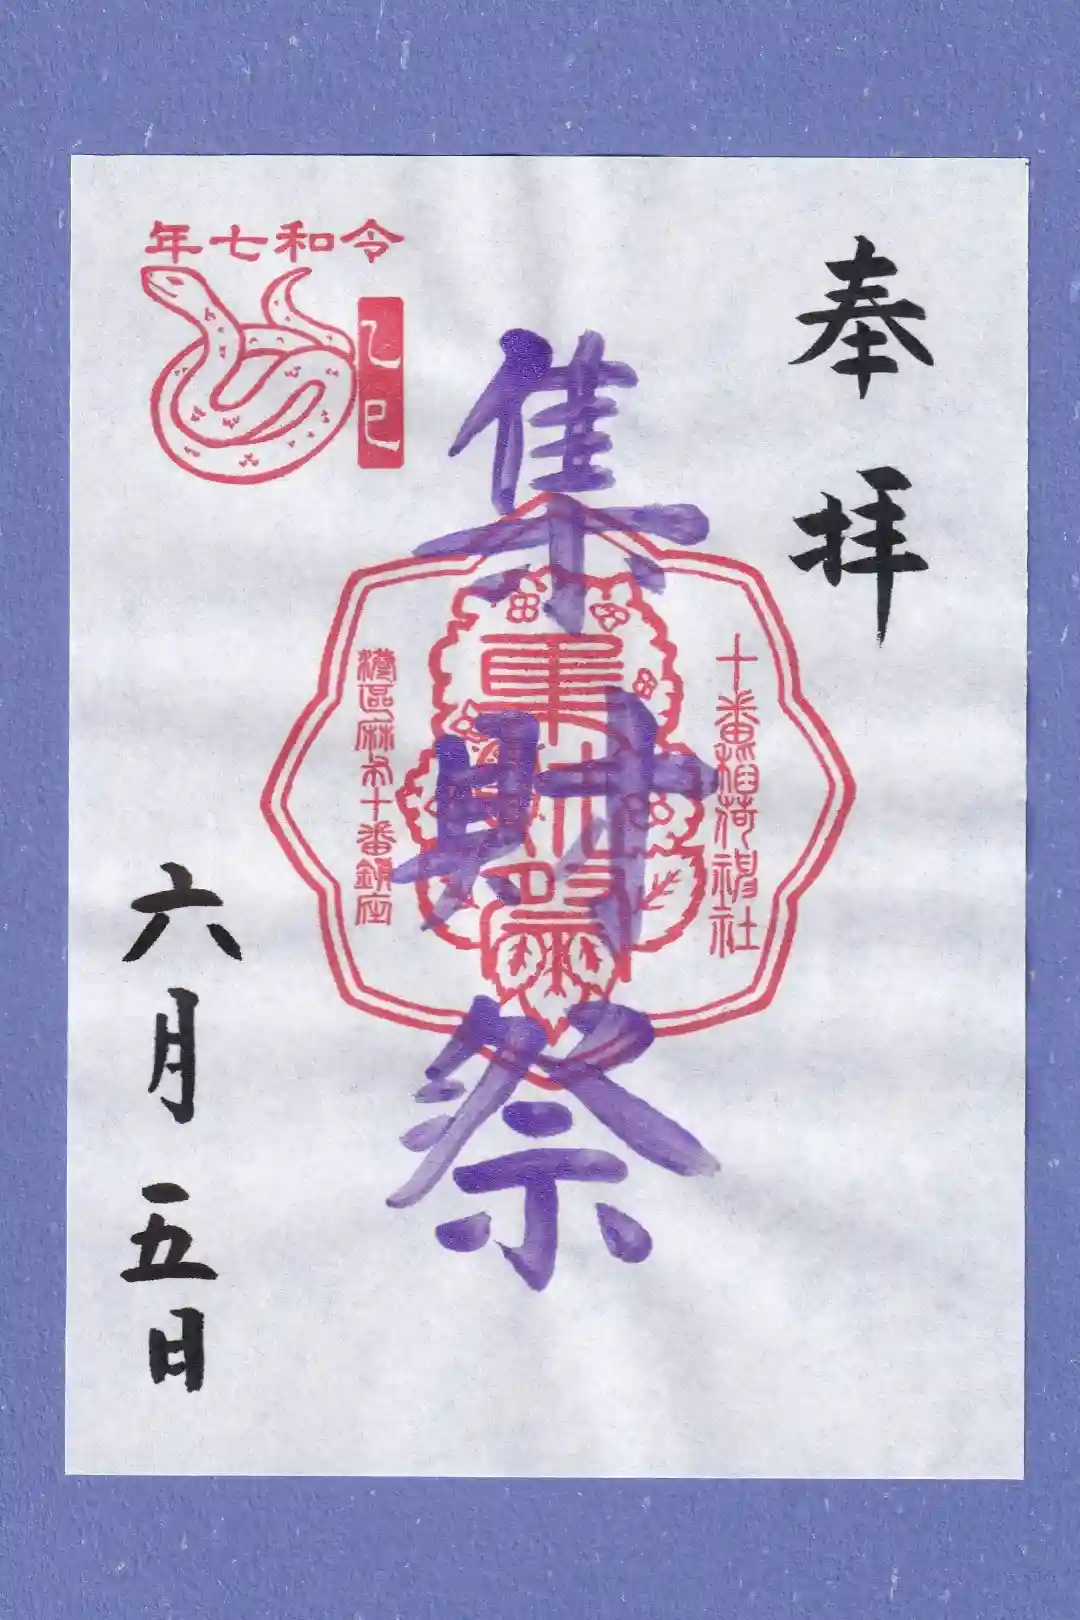 奉拝
十番稲荷神社
集財祭
港區麻布十番鎮座
令和七年
乙巳
六月五日